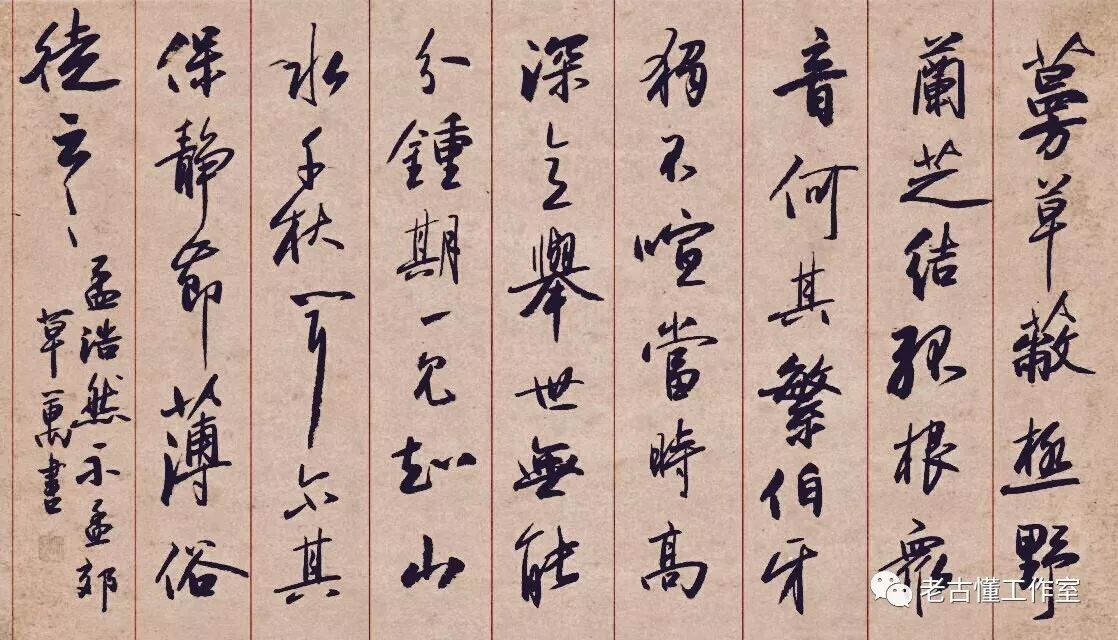 蔓草蔽極野
蘭芝結孤根衆
音何其繁伯牙
獨不喧當時高
深意舉世無能
分鍾期一見知山
水千秋聞尔其
保静節薄俗
徒云云
孟浩然示孟郊
草書
老古懂工作室